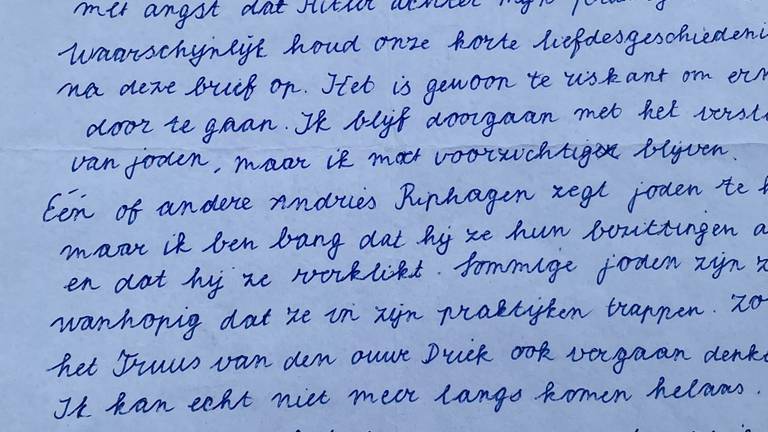 met angst dat Hitler achter mijn
Waarschijnlijk houd onze korte liefdesgeschiedeni
na deze brief op. Het is gewoon te riskant om er
door te gaan. Ik blijf doorgaan met het verst
van joden, maar ik moet voorzichtiger blijven.
Eén of andere Andries Riphagen zegt joden te h
maar ik ben bang dat hij ze hun bezittingen a
en dat hij ze verklikt. Sommige joden zijn z
wanhopig dat ze in zijn praktijken trappen. Zo
het Truus van den ouwe Driek ook vergaan denk
Ik kan echt niet meer langs komen helaas.